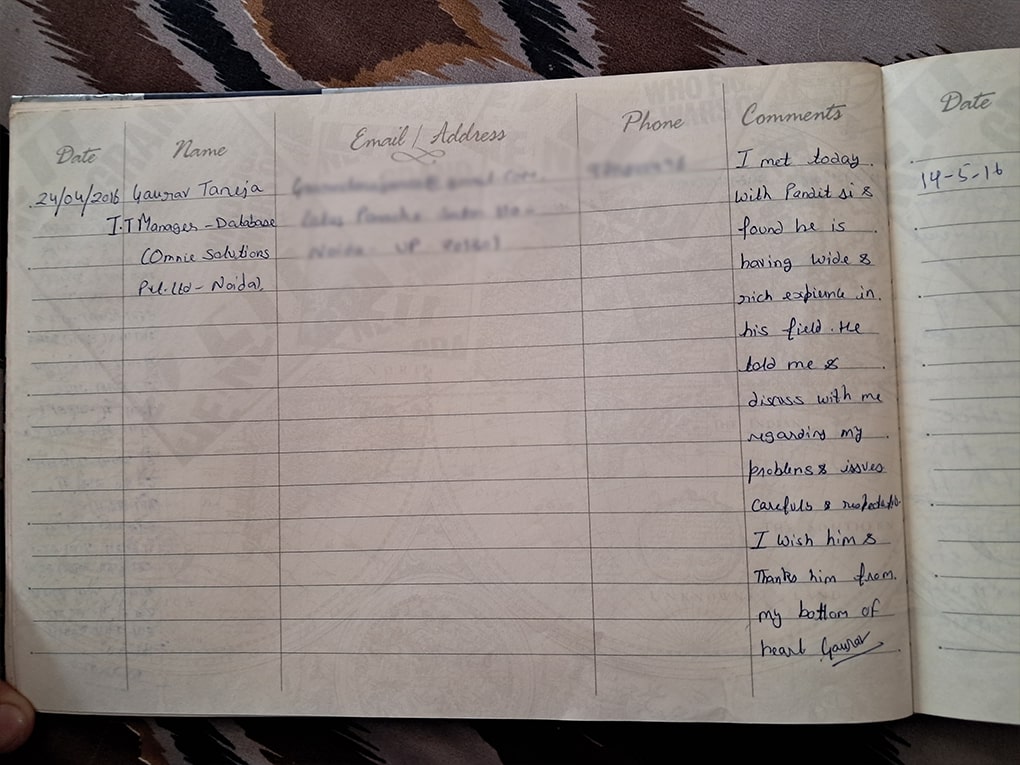 Date Name Email / Address Phone Comments
24/04/2016 Gaurav Taneja
I.T Manages - Database
COmnie Solutions
Pvt. Ltd - Noida
I met today
with Pandit Ji &
found he is
having wide &
rich expience in
his field. He
told me &
discuss with me
regarding my
problems & issues
Carefuls &
I wish him &
Thanks him from
my bottom of
heart Gaurav
Date
14-5-16